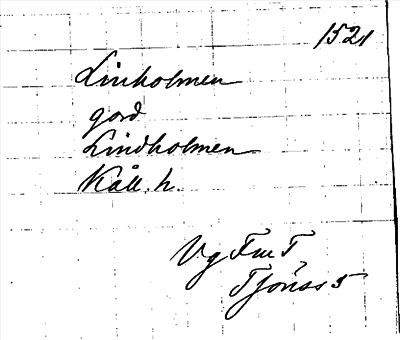 1521
Linholmen
gord
Lindholmen
Kåll. h.
Vg FmT
Tjörss 5